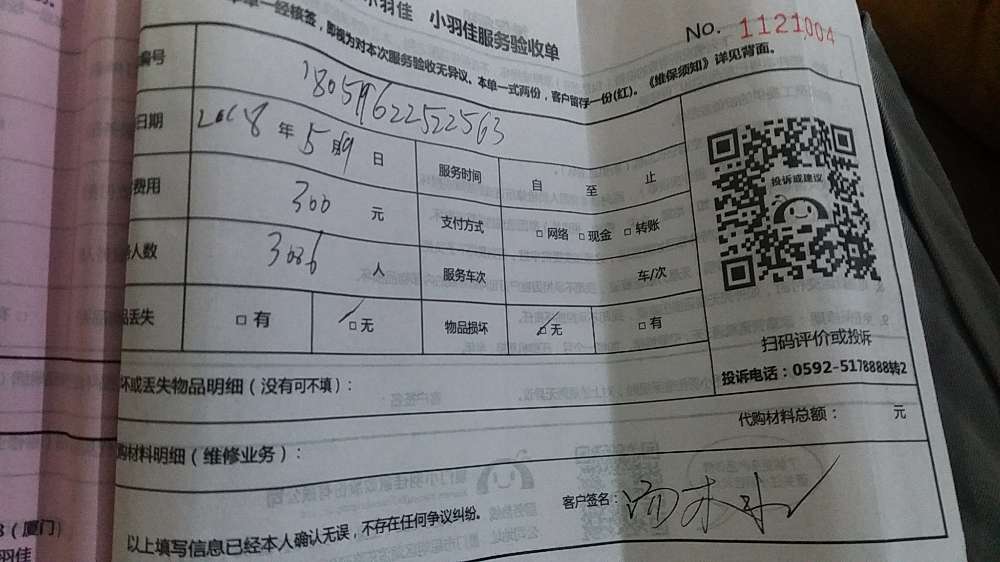 小羽佳 小羽佳服务验收单
No. 1121004
单一经核签，即视为对本次服务验收无异议。本单一式两份，客户留存一份(红)。《维保须知》详见背面。
编号
日期 2018 年 5月19 日 服务时间 自 至 止
费用 300 元 支付方式 □ 网络 □ 现金 □ 转账
人数 3036 人 服务车次 车/次
品丢失 □ 有 □ 无 物品损坏 □ 无 □ 有
投诉或建议
扫码评价或投诉
投诉电话：0592-5178888转2
坏或丢失物品明细（没有可不填）：
代购材料总额： 元
购材料明细（维修业务）：
客户签名：
以上填写信息已经本人确认无误，不存在任何争议纠纷。
（厦门）
羽佳